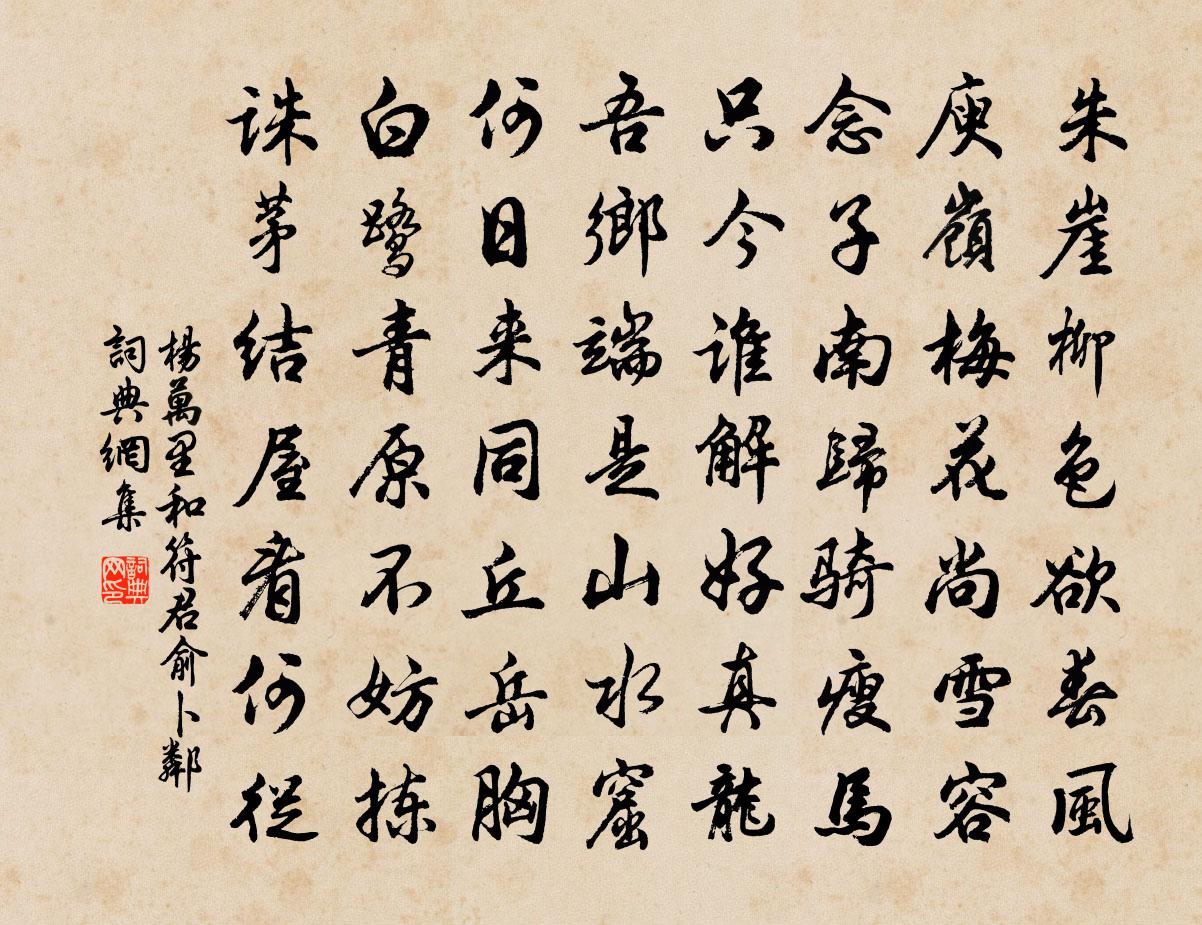 朱崖柳色欲春風
庾嶺梅花尚雪容
念子南歸騎瘦馬
只今誰解好真龍
吾鄉端是山水窟
何日来同丘岳胸
白鹭青原不妨揀
誅茅結屋看何從
楊萬里和符君俞卜鄰
詞典網集
詞典網印